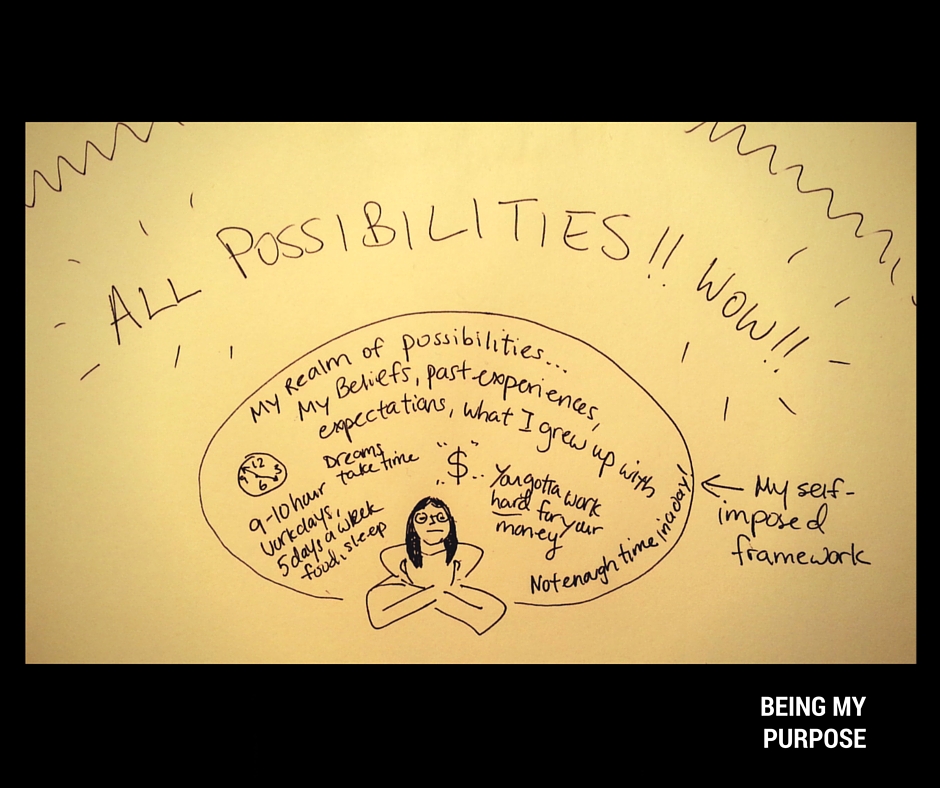 ALL POSSIBILITIES!! WOW!!
My Realm of possibilities...
My Beliefs, past experiences,
expectations, what I grew up with
12
3
6
9
Dreams
take time
"$"
9-10 hour
workdays,
5 days a week
food, sleep
You gotta work
hard for your
money
Not enough time in a day!
My self-
imposed
framework
BEING MY
PURPOSE